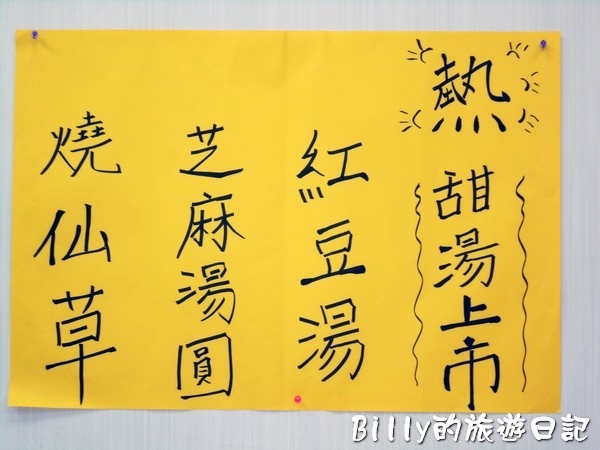 熱甜湯上市
紅豆湯
芝麻湯圓
燒仙草
Billy的旅遊日記